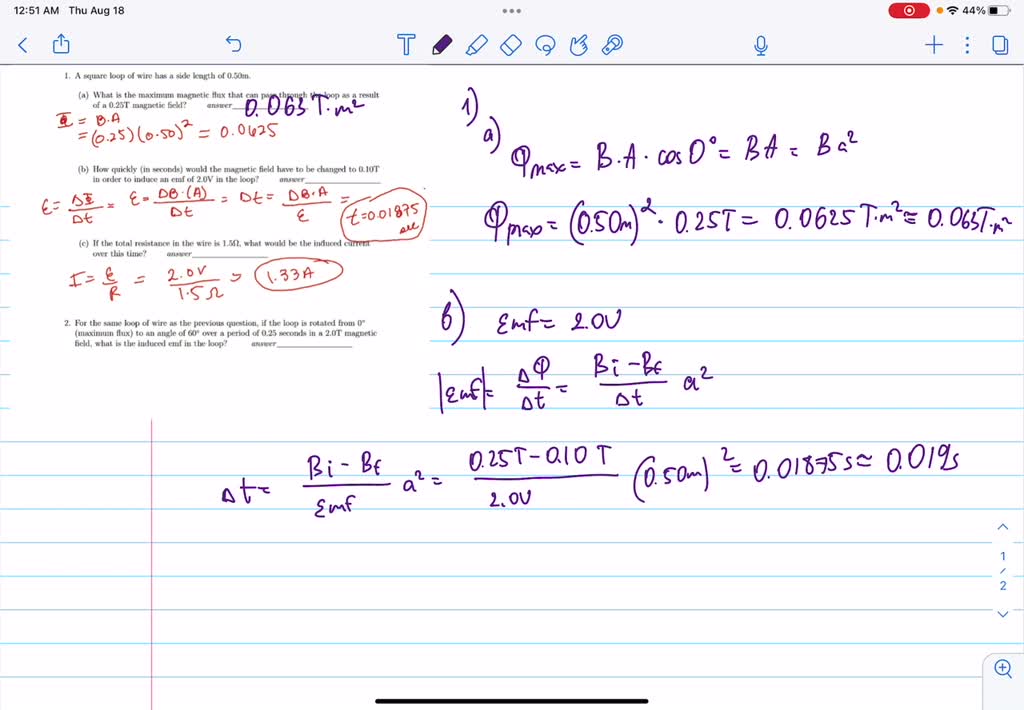 12:51 AM Thu Aug 18
44%
1. A square loop of wire has a side length of 0.50m.
(a) What is the maximum magnetic flux that can pass through the loop as a result
of a 0.25T magnetic field? answer 0.063 T·m²
Φ = B·A
= (0.25)(0.50)² = 0.0625
(b) How quickly (in seconds) would the magnetic field have to be changed to 0.10T
in order to induce an emf of 2.0V in the loop? answer
ε = ΔΦ/Δt = ε = ΔB·(A)/Δt = Δt = ΔB·A/ε = t=0.01875 sec
(c) If the total resistance in the wire is 1.5Ω, what would be the induced current
over this time? answer
I = ε/R = 2.0V/1.5Ω = 1.33A
2. For the same loop of wire as the previous question, if the loop is rotated from 0°
(maximum flux) to an angle of 60° over a period of 0.25 seconds in a 2.0T magnetic
field, what is the induced emf in the loop? answer
1)
a)
φmax = B·A·cos0° = BA = Ba²
φmax = (0.50m)² · 0.25T = 0.0625 T·m² ≈ 0.063T·m²
b) εmf = 2.0V
|εmf| = Δφ/Δt = Bi-Bf/Δt a²
Δt = Bi-Bf/εmf a² = 0.25T-0.10T/2.0V (0.50m)² = 0.01875s ≈ 0.019s
1
2
T